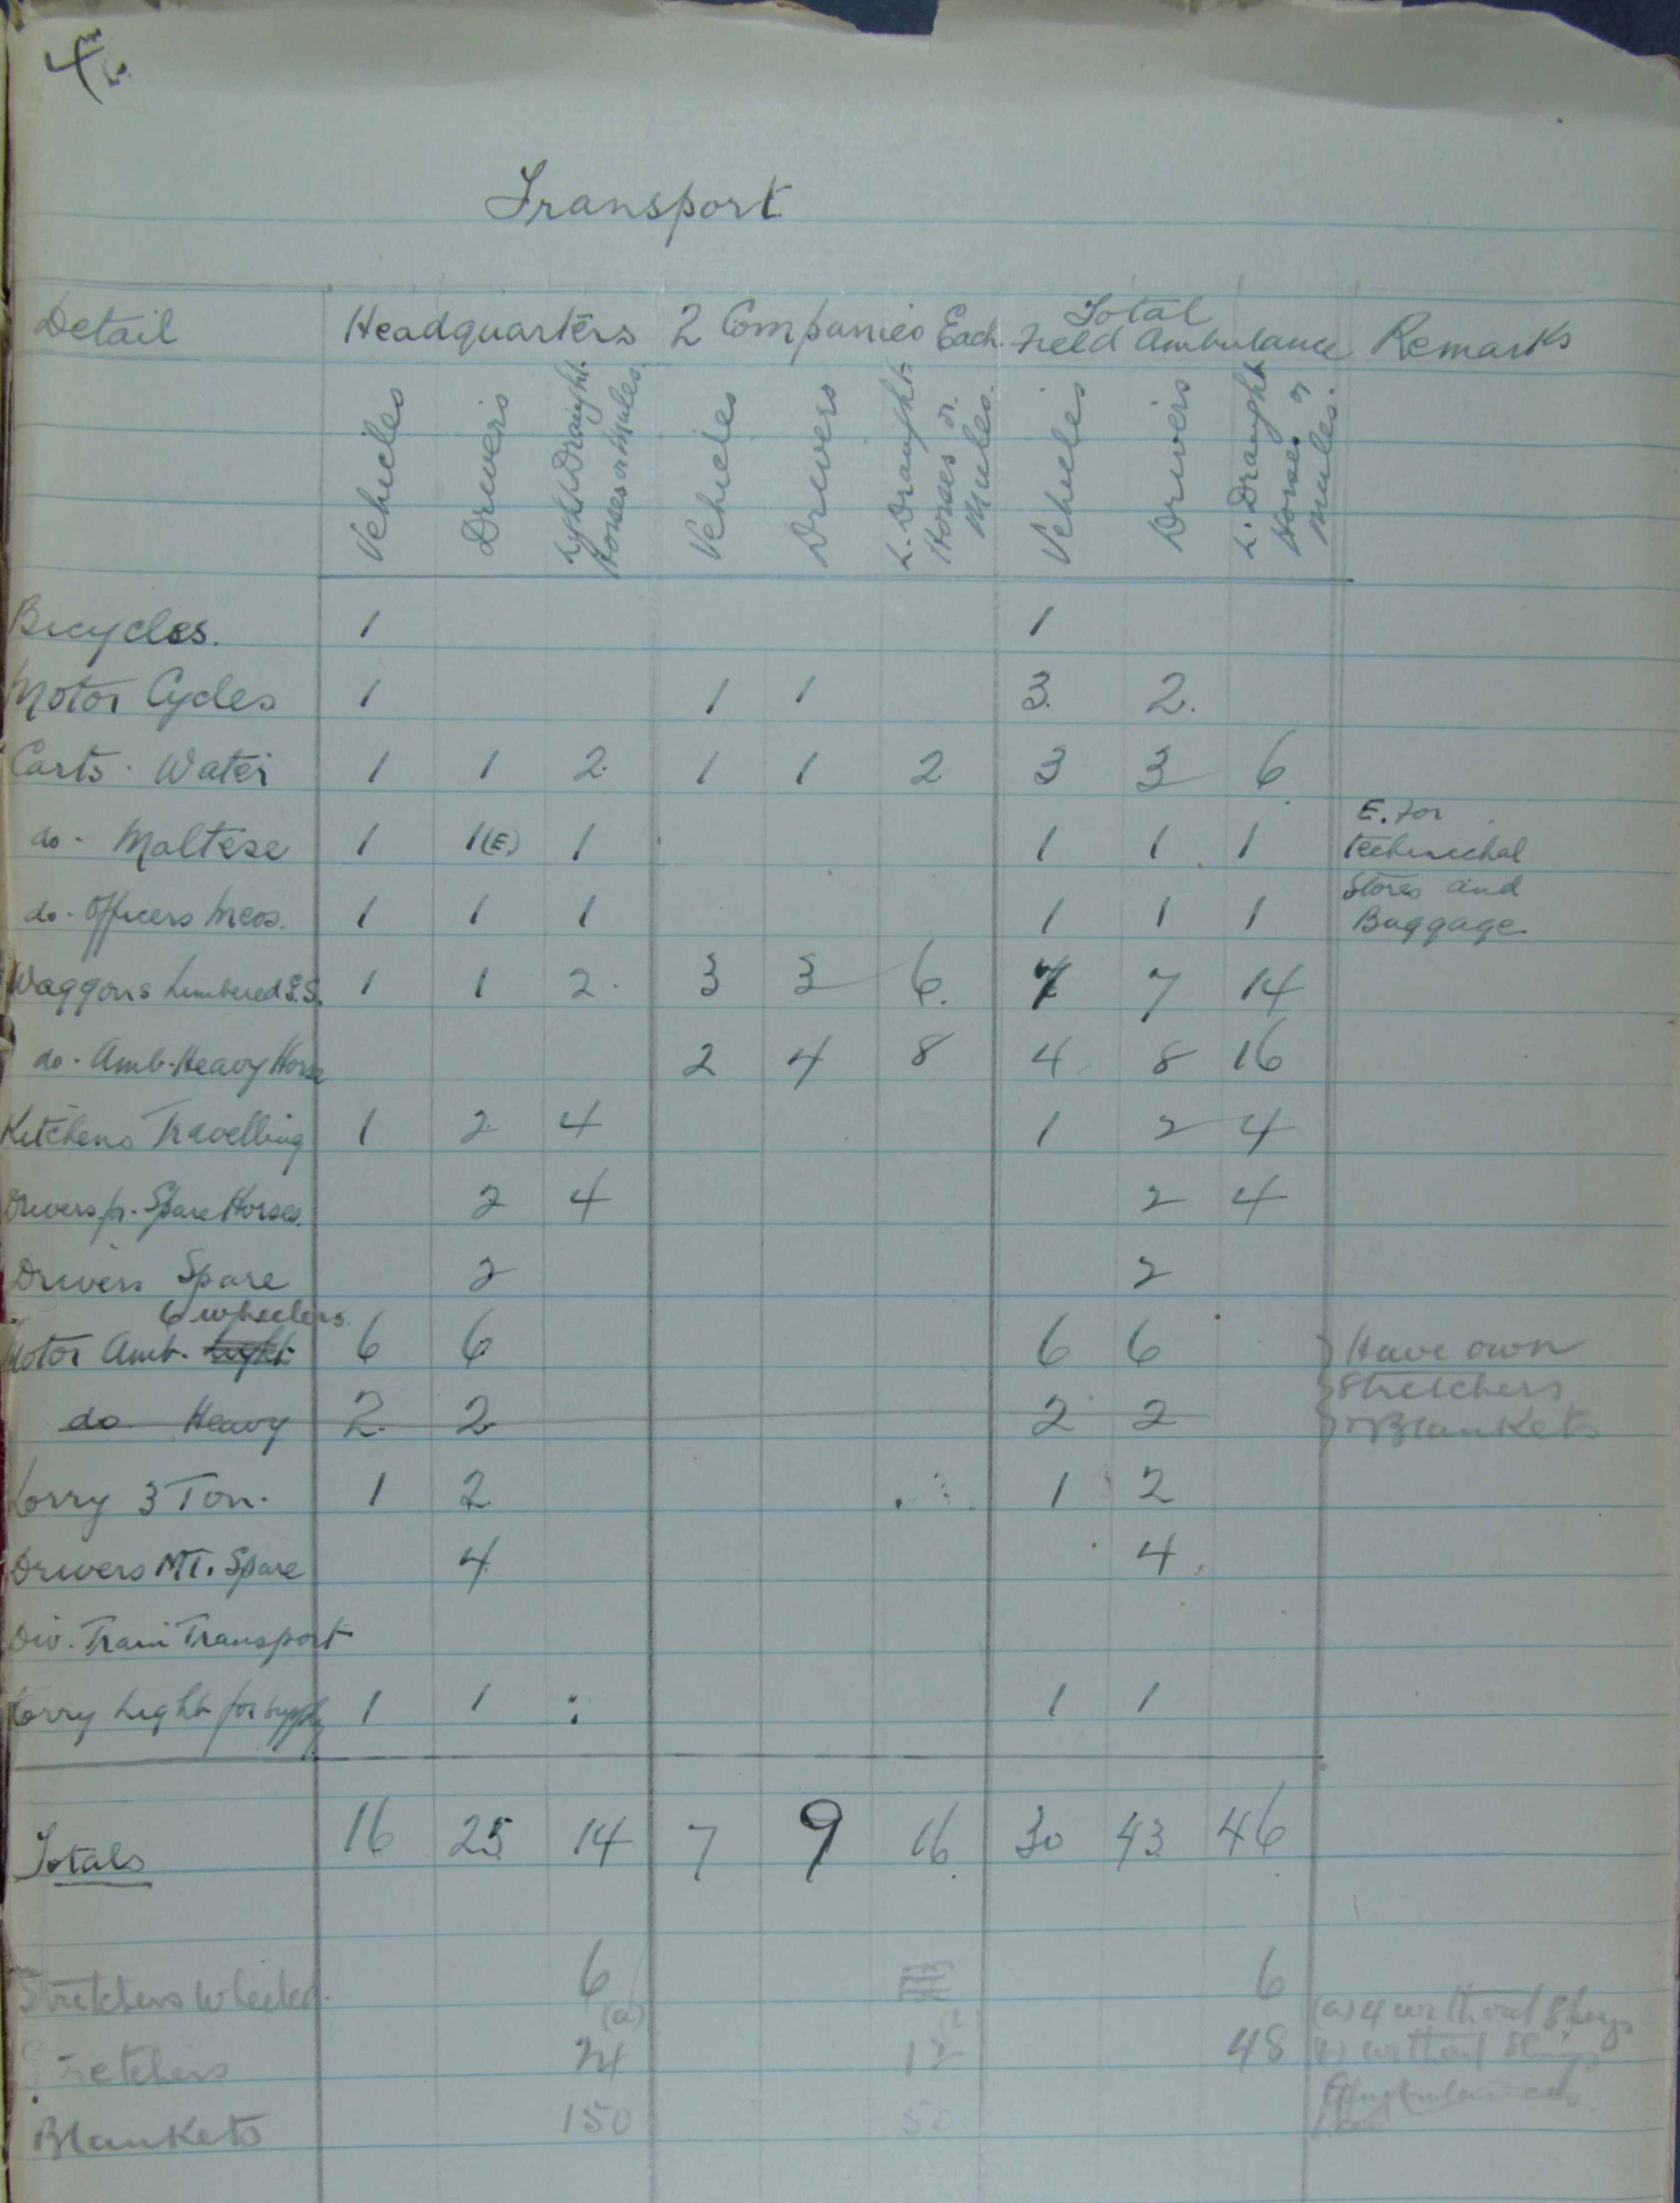 4.
Transport
Detail Headquarters 2 Companies Each. Total Field Ambulance Remarks
Vehicles Drivers Light Draught Horses or Mules. Vehicles Drivers L. Draught Horses or Mules. Vehicles Drivers L. Draught Horses or Mules.
Bicycles. 1 1
Motor Cycles 1 1 1 3. 2.
Carts. Water 1 1 2 1 1 2 3 3 6
do. Maltese 1 1(E) 1 1 1 1 E. for Technichal
do. Officers Mess. 1 1 1 1 1 1 Stores and Baggage.
Waggons Limbered G.S. 1 1 2. 3 3 6. 7 7 14
do. Amb. Heavy Horse 2 4 8 4 8 16
Kitchens Travelling 1 2 4 1 2 4
Drivers for Spare Horses. 2 4 2 4
Drivers Spare 2 2
6 wheelers.
Motor Amb. Light 6 6 6 6 Have own
do Heavy 2 2 2 2 Stretchers Blankets
Lorry 3 Ton. 1 2 1 2
Drivers MT. Spare 4 4
Div. Train Transport
Lorry Light for Supply 1 1 1 1
Totals 16 25 14 7 9 16 30 43 46
Stretchers Wheeled. 6 6
(a) (a) 4 without Slings
Stretchers 24 12 48 without Slings
Blankets 150 50